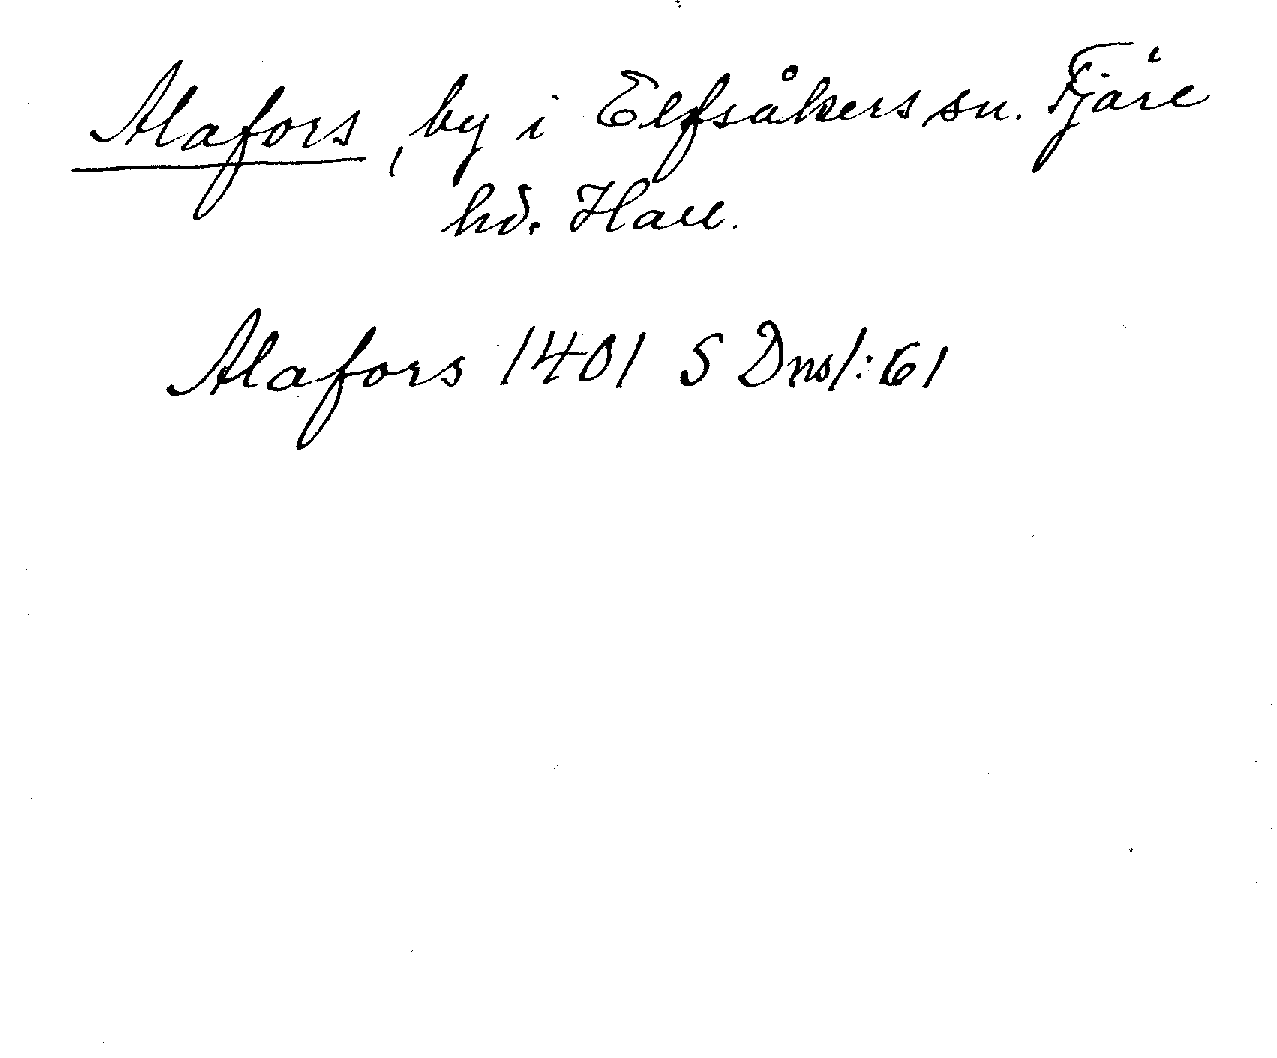 Alafors, by i Elfsåkers sn. Fjäre
hd. Hall.
Alafors 1401 S Dns1:61